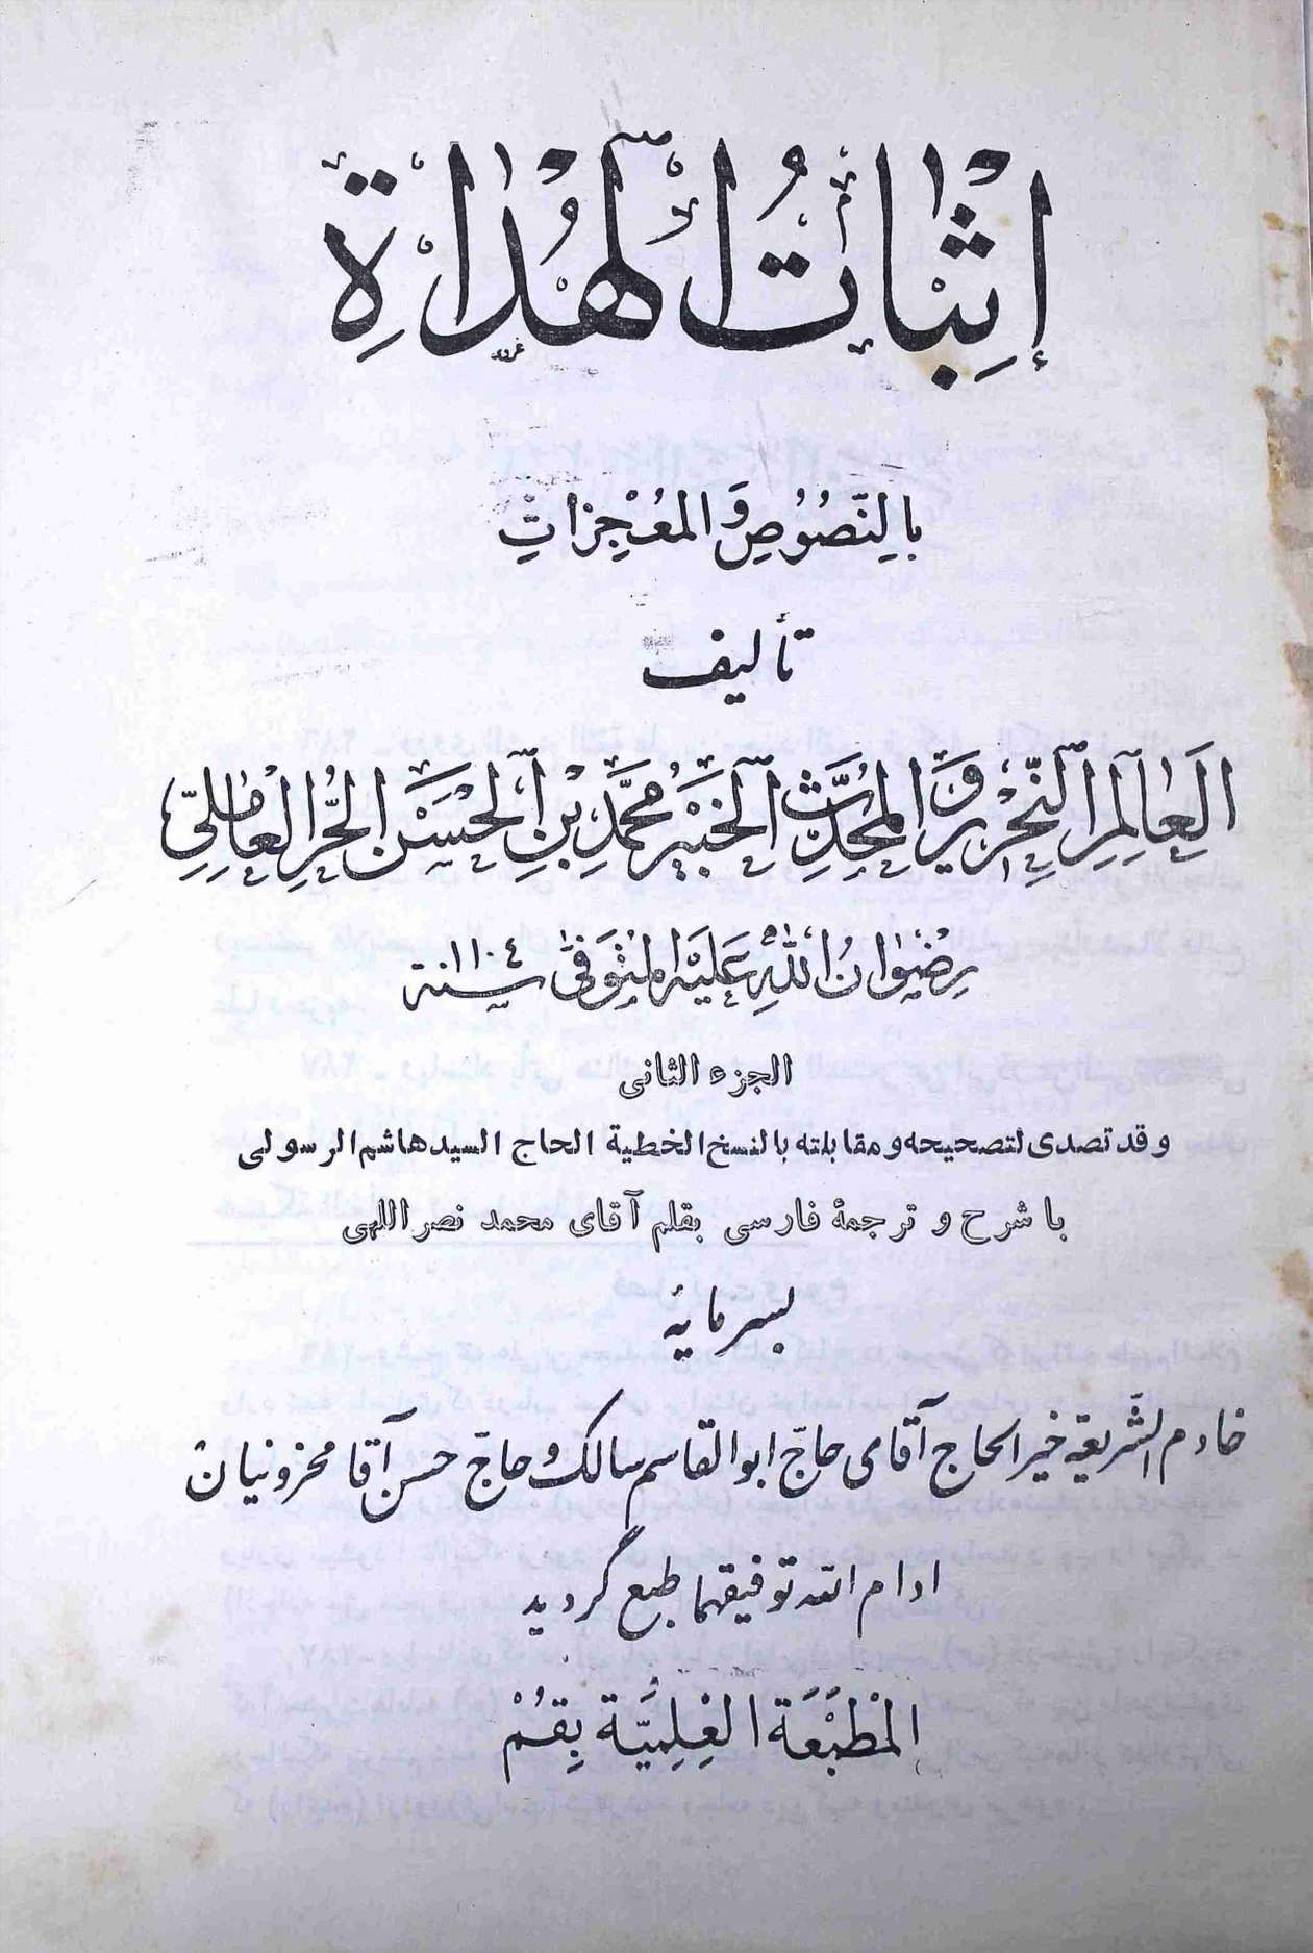 إثبات الهداة
بالنصوص والمعجزات
تأليف
العالم النحرير والمحدث الخبير محمد بن الحسن الحر العاملي
رضوان الله عليه المتوفى سنة ١١٠٤
الجزء الثانى
وقد تصدى لتصحيحه ومقابلته بالنسخ الخطية الحاج السيد هاشم الرسولى
با شرح و ترجمهٔ فارسى بقلم آقاى محمد نصر اللهى
بسرمایهٔ
خادم الشریعة خیر الحاج آقای حاج ابوالقاسم سالک و حاج حسن آقا محزونیان
ادام الله توفیقهما طبع گردید
المطبعة العلمية بقم